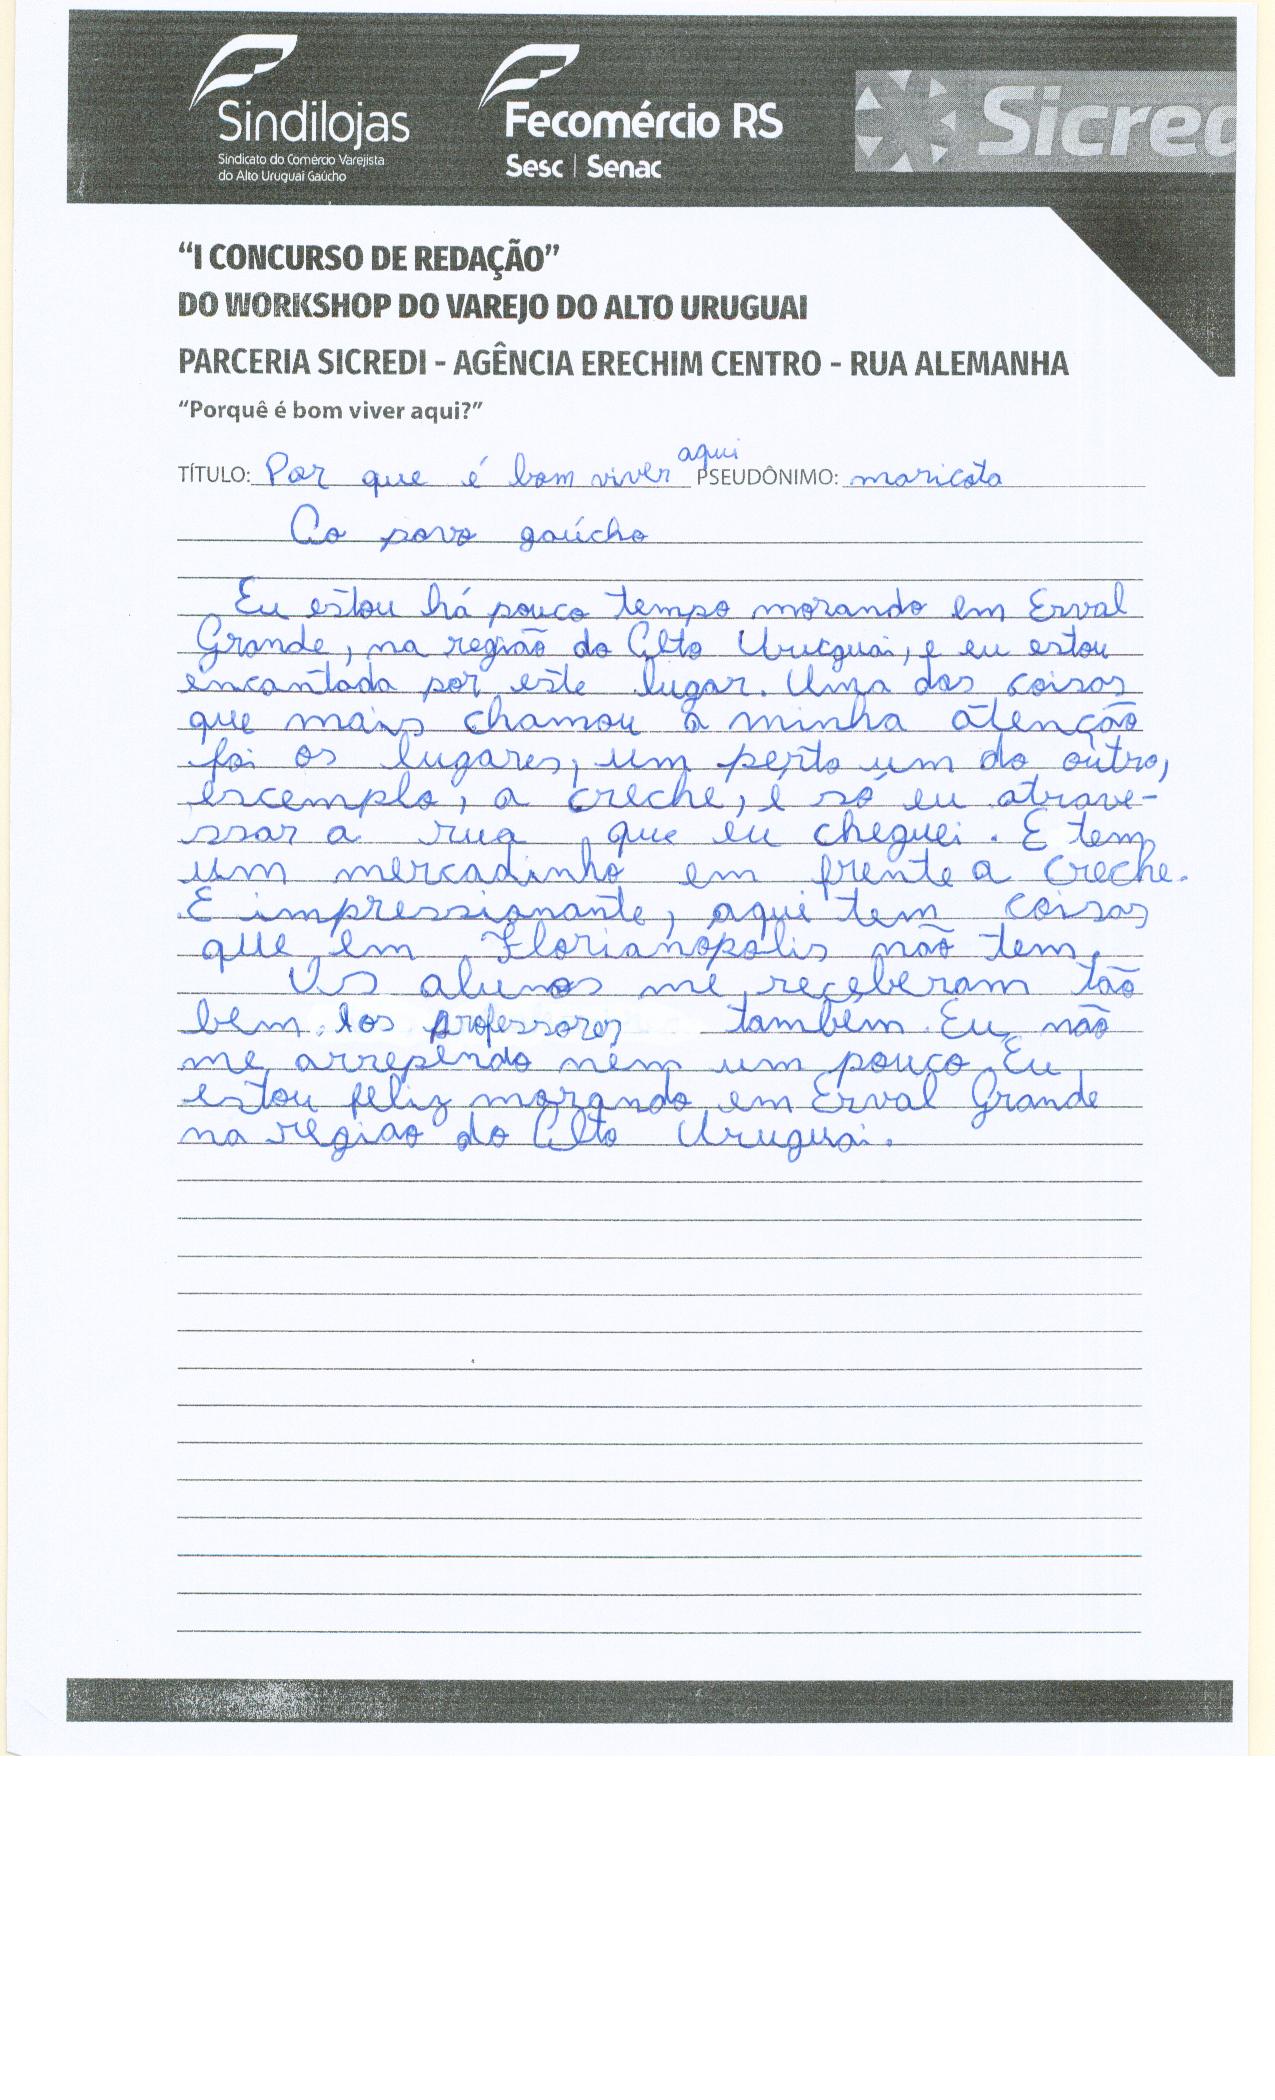 Sindilojas
Sindicato do Comércio Varejista
do Alto Uruguai Gaúcho
Fecomércio RS
Sesc | Senac
Sicred
“I CONCURSO DE REDAÇÃO”
DO WORKSHOP DO VAREJO DO ALTO URUGUAI
PARCERIA SICREDI - AGÊNCIA ERECHIM CENTRO - RUA ALEMANHA
“Porquê é bom viver aqui?”
TÍTULO: Por que é bom viver aqui PSEUDÔNIMO: maricota
Ao povo gaúcho
Eu estou há pouco tempo morando em Erval
Grande, na região do Alto Urucguai, e eu estou
encantada por este lugar. Uma das coisas
que mais chamou a minha atenção
foi os lugares, um perto um do outro,
escemplo, a creche, é só eu atrave-
ssar a rua que eu cheguei. E tem
um mercadinho em frente a creche.
É impressionante, aqui tem coisas
que em Florianópolis não tem.
Os alunos me receberam tão
bem, os professores também. Eu não
me arrependo nem um pouco. Eu
estou feliz morando em Erval Grande
na região do Alto Uruguai.